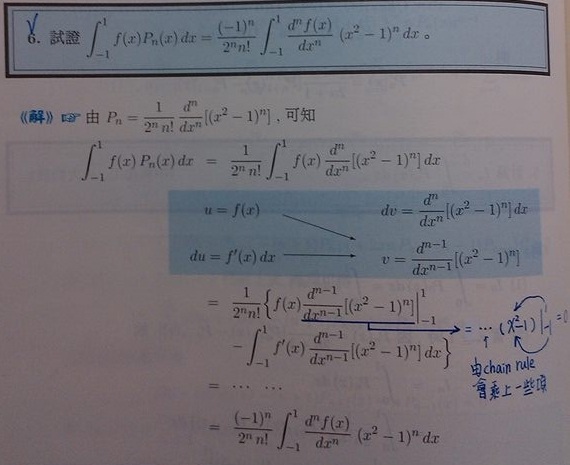 V
6. 試證 ∫_{-1}^{1} f(x)P_n(x) dx = \frac{(-1)^n}{2^n n!} ∫_{-1}^{1} \frac{d^n f(x)}{dx^n} (x^2 − 1)^n dx 。
《解》☞ 由 P_n = \frac{1}{2^n n!} \frac{d^n}{dx^n}[(x^2 − 1)^n] , 可知
∫_{-1}^{1} f(x) P_n(x) dx = \frac{1}{2^n n!} ∫_{-1}^{1} f(x) \frac{d^n}{dx^n}[(x^2 − 1)^n] dx
u = f(x) dv = \frac{d^n}{dx^n}[(x^2 − 1)^n] dx
du = f′(x) dx v = \frac{d^{n−1}}{dx^{n−1}}[(x^2 − 1)^n]
= \frac{1}{2^n n!} { f(x) \frac{d^{n−1}}{dx^{n−1}}[(x^2 − 1)^n] |_{-1}^{1}
= ⋯ (x^2−1) |_{-1}^{1} = 0
− ∫_{-1}^{1} f′(x) \frac{d^{n−1}}{dx^{n−1}}[(x^2 − 1)^n] dx }
由chain rule
會乘上一些項
= ⋯ ⋯
= \frac{(-1)^n}{2^n n!} ∫_{-1}^{1} \frac{d^n f(x)}{dx^n} (x^2 − 1)^n dx